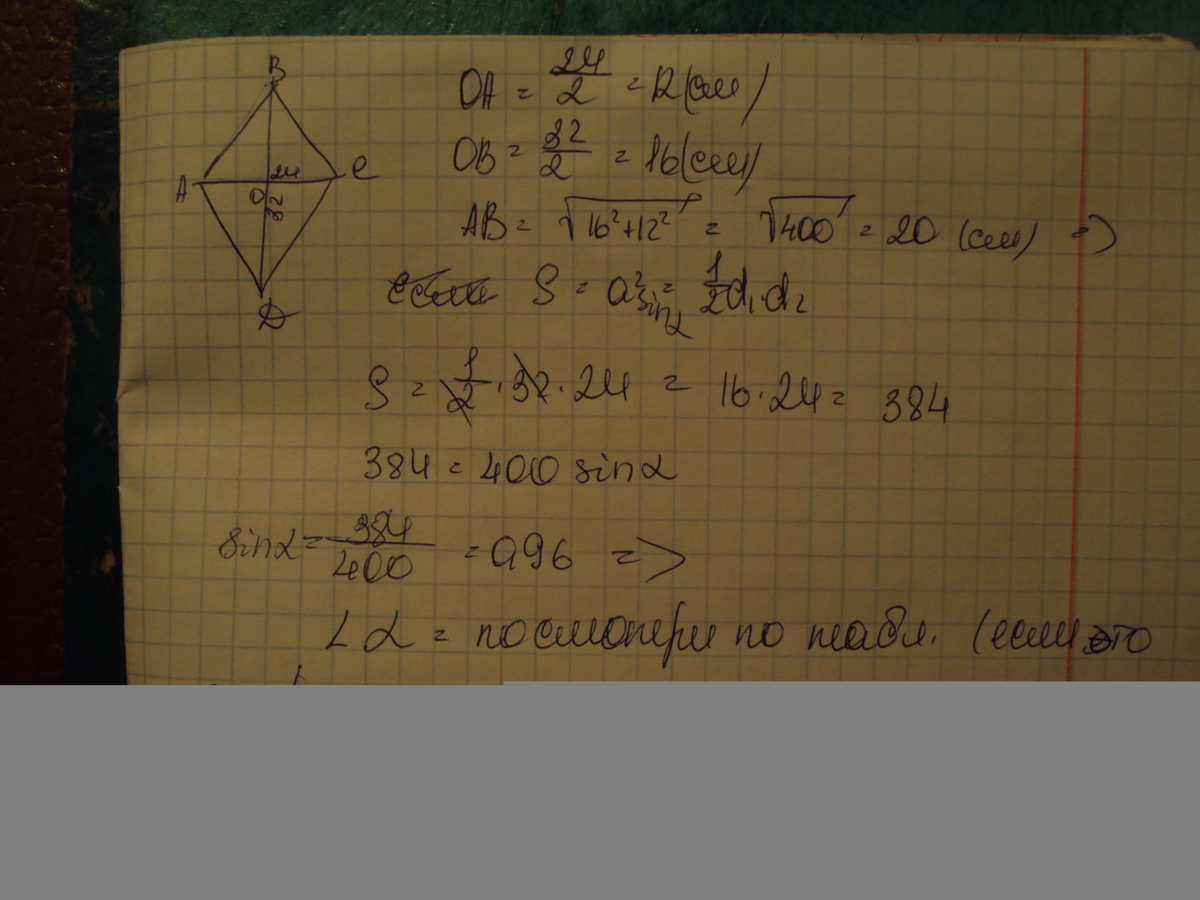 B
A
C
O
24
32
D
OA = 24/2 = 12 (см)
OB = 32/2 = 16 (см)
AB = √(16²+12²) = √400 = 20 (см) =>
S = a² sinα = 1/2 d₁·d₂
S = 1/2 · 32 · 24 = 16·24 = 384
384 = 400 sinα
sinα = 384/400 = 0,96 =>
∠α = посмотри по табл. (если это